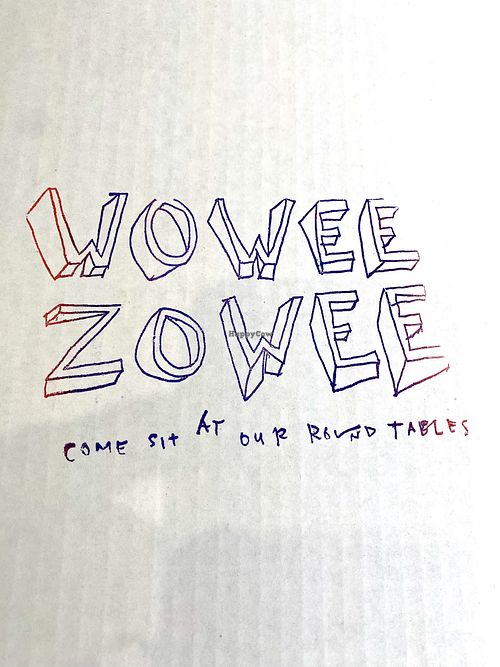 WOWEE
ZOWEE
HappyCow
COME SIt AT OUR ROUND TABLES